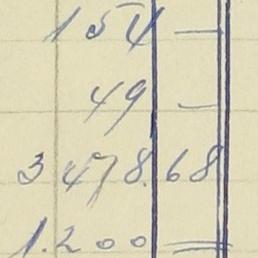 154 —
49 —
3 478.68
1.200 =